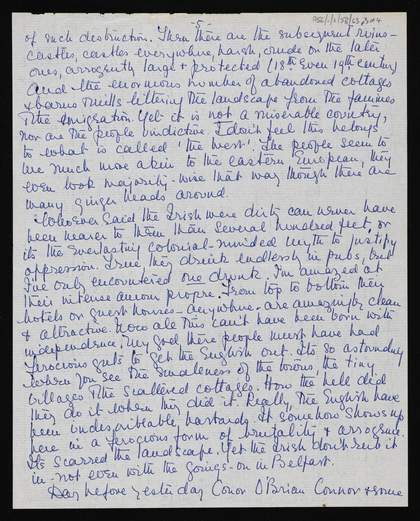 - 5 -
of such destruction. Then there are the subsequent ruins -
castles, castles everywhere, harsh, crude on the later
ones, arrogantly large & protected (18th even 19th century)
And the enormous number of abandoned cottages
& barns & mills littering the landscape from the famines
& the emigration. Yet it is not a miserable country,
nor are the people vindictive. I don't feel this belongs
to what is called 'the West'. The people seem to
be much more akin to the eastern European, they
even look majority-wise that way though there are
many ginger heads around.
Whoever said the Irish were dirty can never have
been nearer to them than several hundred feet, or
its the everlasting colonial-minded myth to justify
oppression. True they drink endlessly in pubs, but
I've only encountered one drunk. I'm amazed at
their intense amour propre. From top to bottom their
hotels or guest houses - anywhere - are amazingly clean
& attractive. Now all this can't have been born with
independence. My God these people must have had
ferocious guts to get the English out. Its so astounding
when you see the smallness of the towns, the tiny
villages & the scattered cottages. How the hell did
they do it when they did it. Really, the English have
been indescribable, bastards. It somehow shows up
here in a ferocious form of brutality & arrogance.
Its scarred the landscape. Yet the Irish don't rub it
in - not even with the goings-on in Belfast.
Day before yesterday Conor O'Brian Connor & some